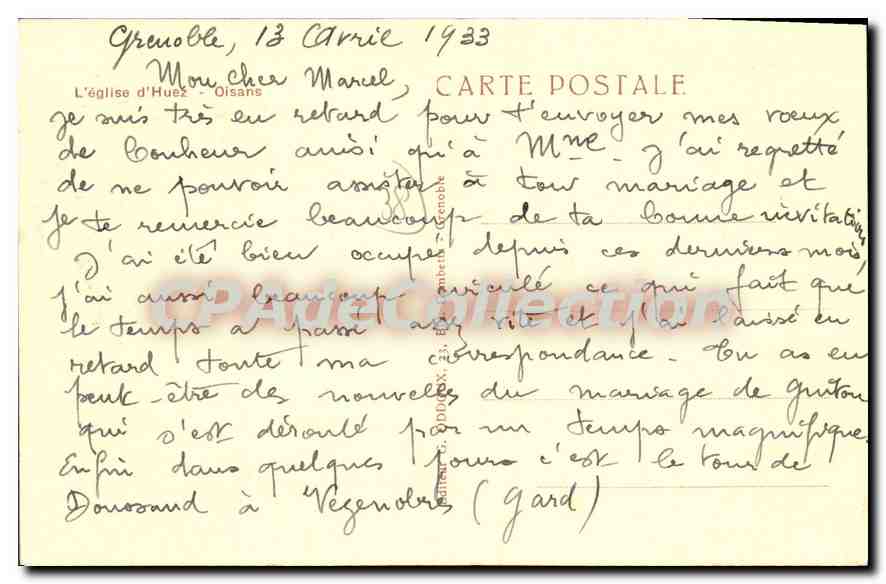 Grenoble, 13 Avril 1933
Mon cher Marcel,
L'église d'Huez - Oisans
CARTE POSTALE
je suis très en retard pour t'envoyer mes vœux
de bonheur ainsi qu'à Mme. J'ai regretté
de ne pouvoir assister à ton mariage et
je te remercie beaucoup de ta bonne invitation
J'ai été bien occupé depuis ces derniers mois,
j'ai aussi beaucoup circulé ce qui fait que
le temps a passé assez vite et j'ai laissé en
retard toute ma correspondance - Tu as eu
peut-être des nouvelles du mariage de Guitou
qui s'est déroulé par un temps magnifique.
Enfin dans quelques jours c'est le tour de
Doussand à Vézenobres (Gard)
Editeur G. ODDOUX, 23, Gambetta - Grenoble
CPADeCollection